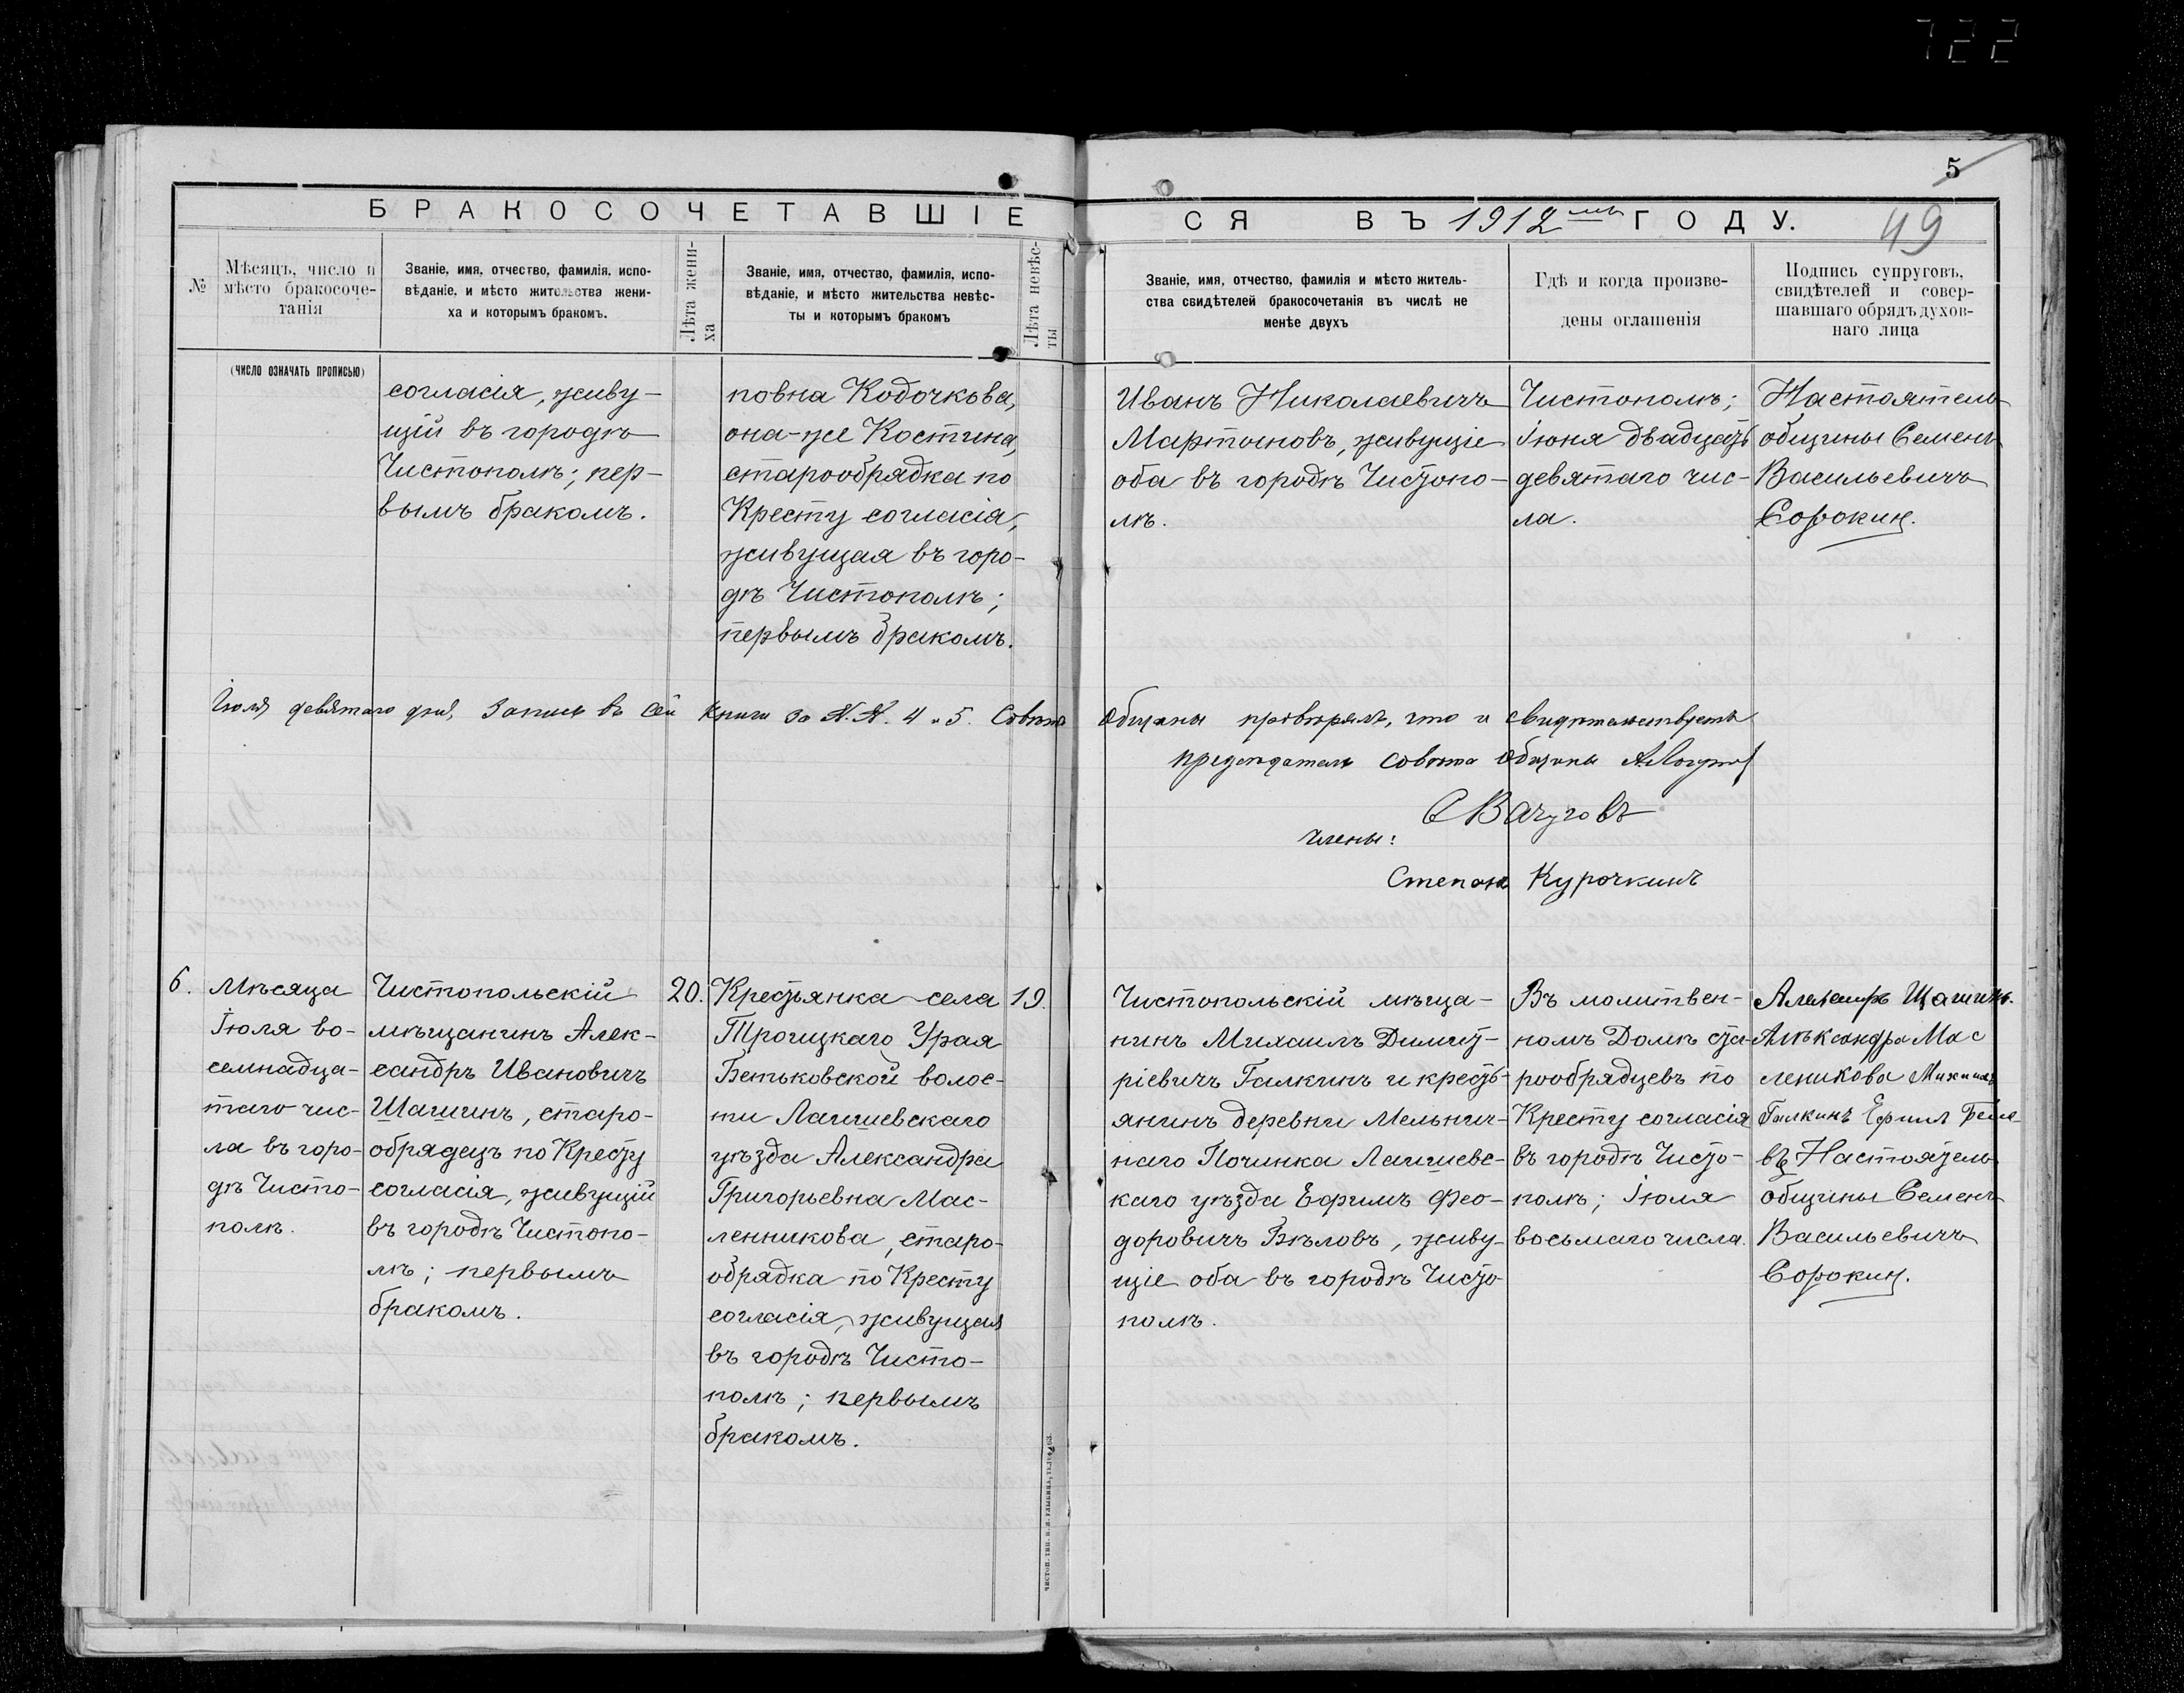 722
5
49
БРАКОСОЧЕТАВШІЕ
СЯ ВЪ 1912 ГОДУ.
№
Мѣсяцъ, число и
мѣсто бракосоче-
танія
Званіе, имя, отчество, фамилія, испо-
вѣданіе, и мѣсто жительства жени-
ха и которымъ бракомъ.
Лѣта жени-
ха
Званіе, имя, отчество, фамилія, испо-
вѣданіе, и мѣсто жительства невѣс-
ты и которымъ бракомъ
Лѣта невѣс-
ты
Званіе, имя, отчество, фамилія и мѣсто житель-
ства свидѣтелей бракосочетанія въ числѣ не
менѣе двухъ
Гдѣ и когда произве-
дены оглашенія
Подпись супруговъ,
свидѣтелей и совер-
шавшаго обрядъ духов-
наго лица
(ЧИСЛО ОЗНАЧАТЬ ПРОПИСЬЮ)
согласія, живу-
щій въ городѣ
Чистополѣ; пер-
вымъ бракомъ.
повна Кодочкова,
она-же Костина,
старообрядка по
Кресту согласія,
живущая въ горо-
дѣ Чистополѣ;
первымъ бракомъ.
Иванъ Николаевичъ
Мартыновъ, живущіе
оба въ городѣ Чистопо-
лѣ.
Чистополѣ;
Іюня двадцать
девятаго чис-
ла.
Настоятель
общины Семенъ
Васильевичъ
Сорокин.
Іюля девятаго дня, запись въ сей книги за №.№. 4 и 5. Совѣтъ Общины провѣрялъ, что и свидѣтельствуетъ
предсѣдатель совѣта Общины
члены:
Степанъ Курочкинъ
6.
Мѣсяца
Іюля во-
семнадца-
таго чис-
ла въ горо-
дѣ Чисто-
полѣ.
Чистопольскій
мѣщанинъ Алек-
сандръ Ивановичъ
Шашинъ, старо-
обрядецъ по Кресту
согласія, живущій
въ городѣ Чистопо-
лѣ; первымъ
бракомъ.
20.
Крестьянка села
Троицкаго Урая
Бетьковской волос-
ти Лаишевскаго
уѣзда Александра
Григорьевна Мас-
ленникова, старо-
обрядка по Кресту
согласія, живущая
въ городѣ Чисто-
полѣ; первымъ
бракомъ.
19.
Чистопольскій мѣща-
нинъ Михаилъ Димит-
ріевичъ Галкинъ и кресть-
янинъ деревни Мельнич-
наго Починка Лаишевс-
каго уѣзда Ефимъ Фео-
доровичъ Бѣловъ, живу-
щіе оба въ городѣ Чисто
полѣ.
Въ молитвен-
номъ Домѣ ста-
рообрядцевъ по
Кресту согласія
въ городѣ Чисто-
полѣ; Іюля
восьмаго числа.
Шашинъ.
Алѣксандра Мас
леникова Михаилъ
Галкинъ Ефимъ
въ Настоятель
общины Семенъ
Васильевичъ
Сорокин.